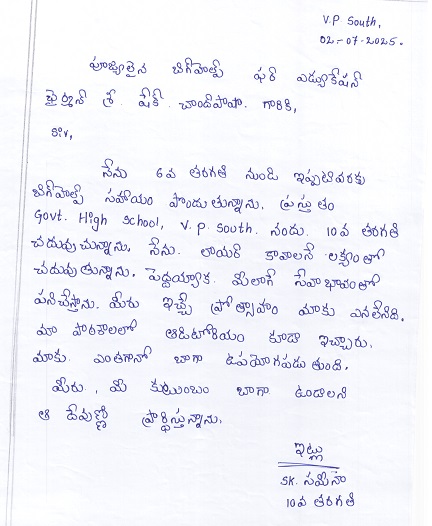 V.P South,
02-07-2025.
పూజ్యులైన బిగ్‌హెల్ప్ ఫర్ ఎడ్యుకేషన్
ఛైర్మన్ శ్రీ. షేక్. చాంద్‌పాషా. గారికి,
Sir,
నేను 6వ తరగతి నుండి ఇప్పటివరకు
బిగ్‌హెల్ప్ సహాయం పొందుతున్నాను. ప్రస్తుతం
Govt. High School, V.P. South. నందు. 10వ తరగతి
చదువుచున్నాను. నేను. లాయర్ కావాలనే లక్ష్యంతో
చదువుతున్నాను. పెద్దయ్యాక. మీలాగే సేవాభావంతో
పనిచేస్తాను. మీరు ఇచ్చే ప్రోత్సాహం మాకు ఎనలేనిది.
మా పాఠశాలలో ఆడిటోరియం కూడా ఇచ్చారు.
మాకు. ఎంతగానో బాగా ఉపయోగపడుతుంది.
మీరు, మీ కుటుంబం బాగా ఉండాలని
ఆ దేవుణ్ణి ప్రార్థిస్తున్నాను.
ఇట్లు
SK. సమీనా
10వ తరగతి